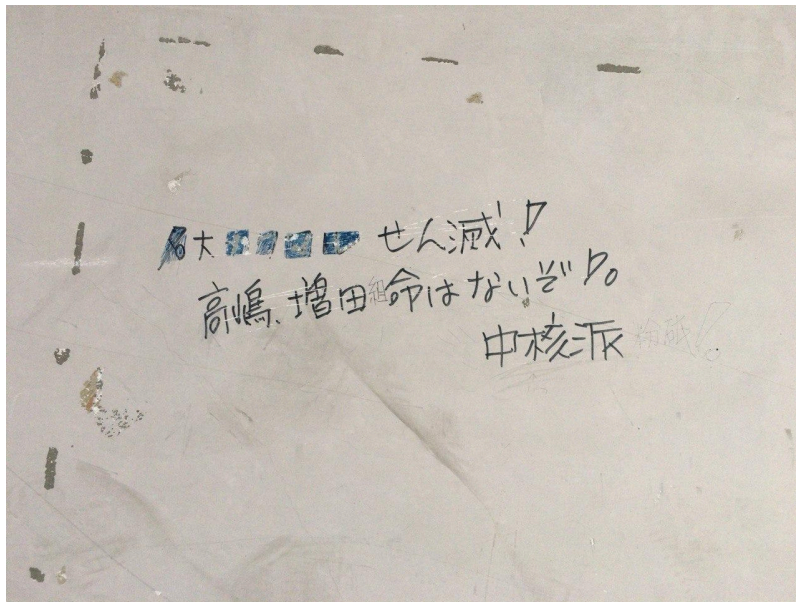 大 せん滅!
高嶋、増田命はないぞ!。
中核派